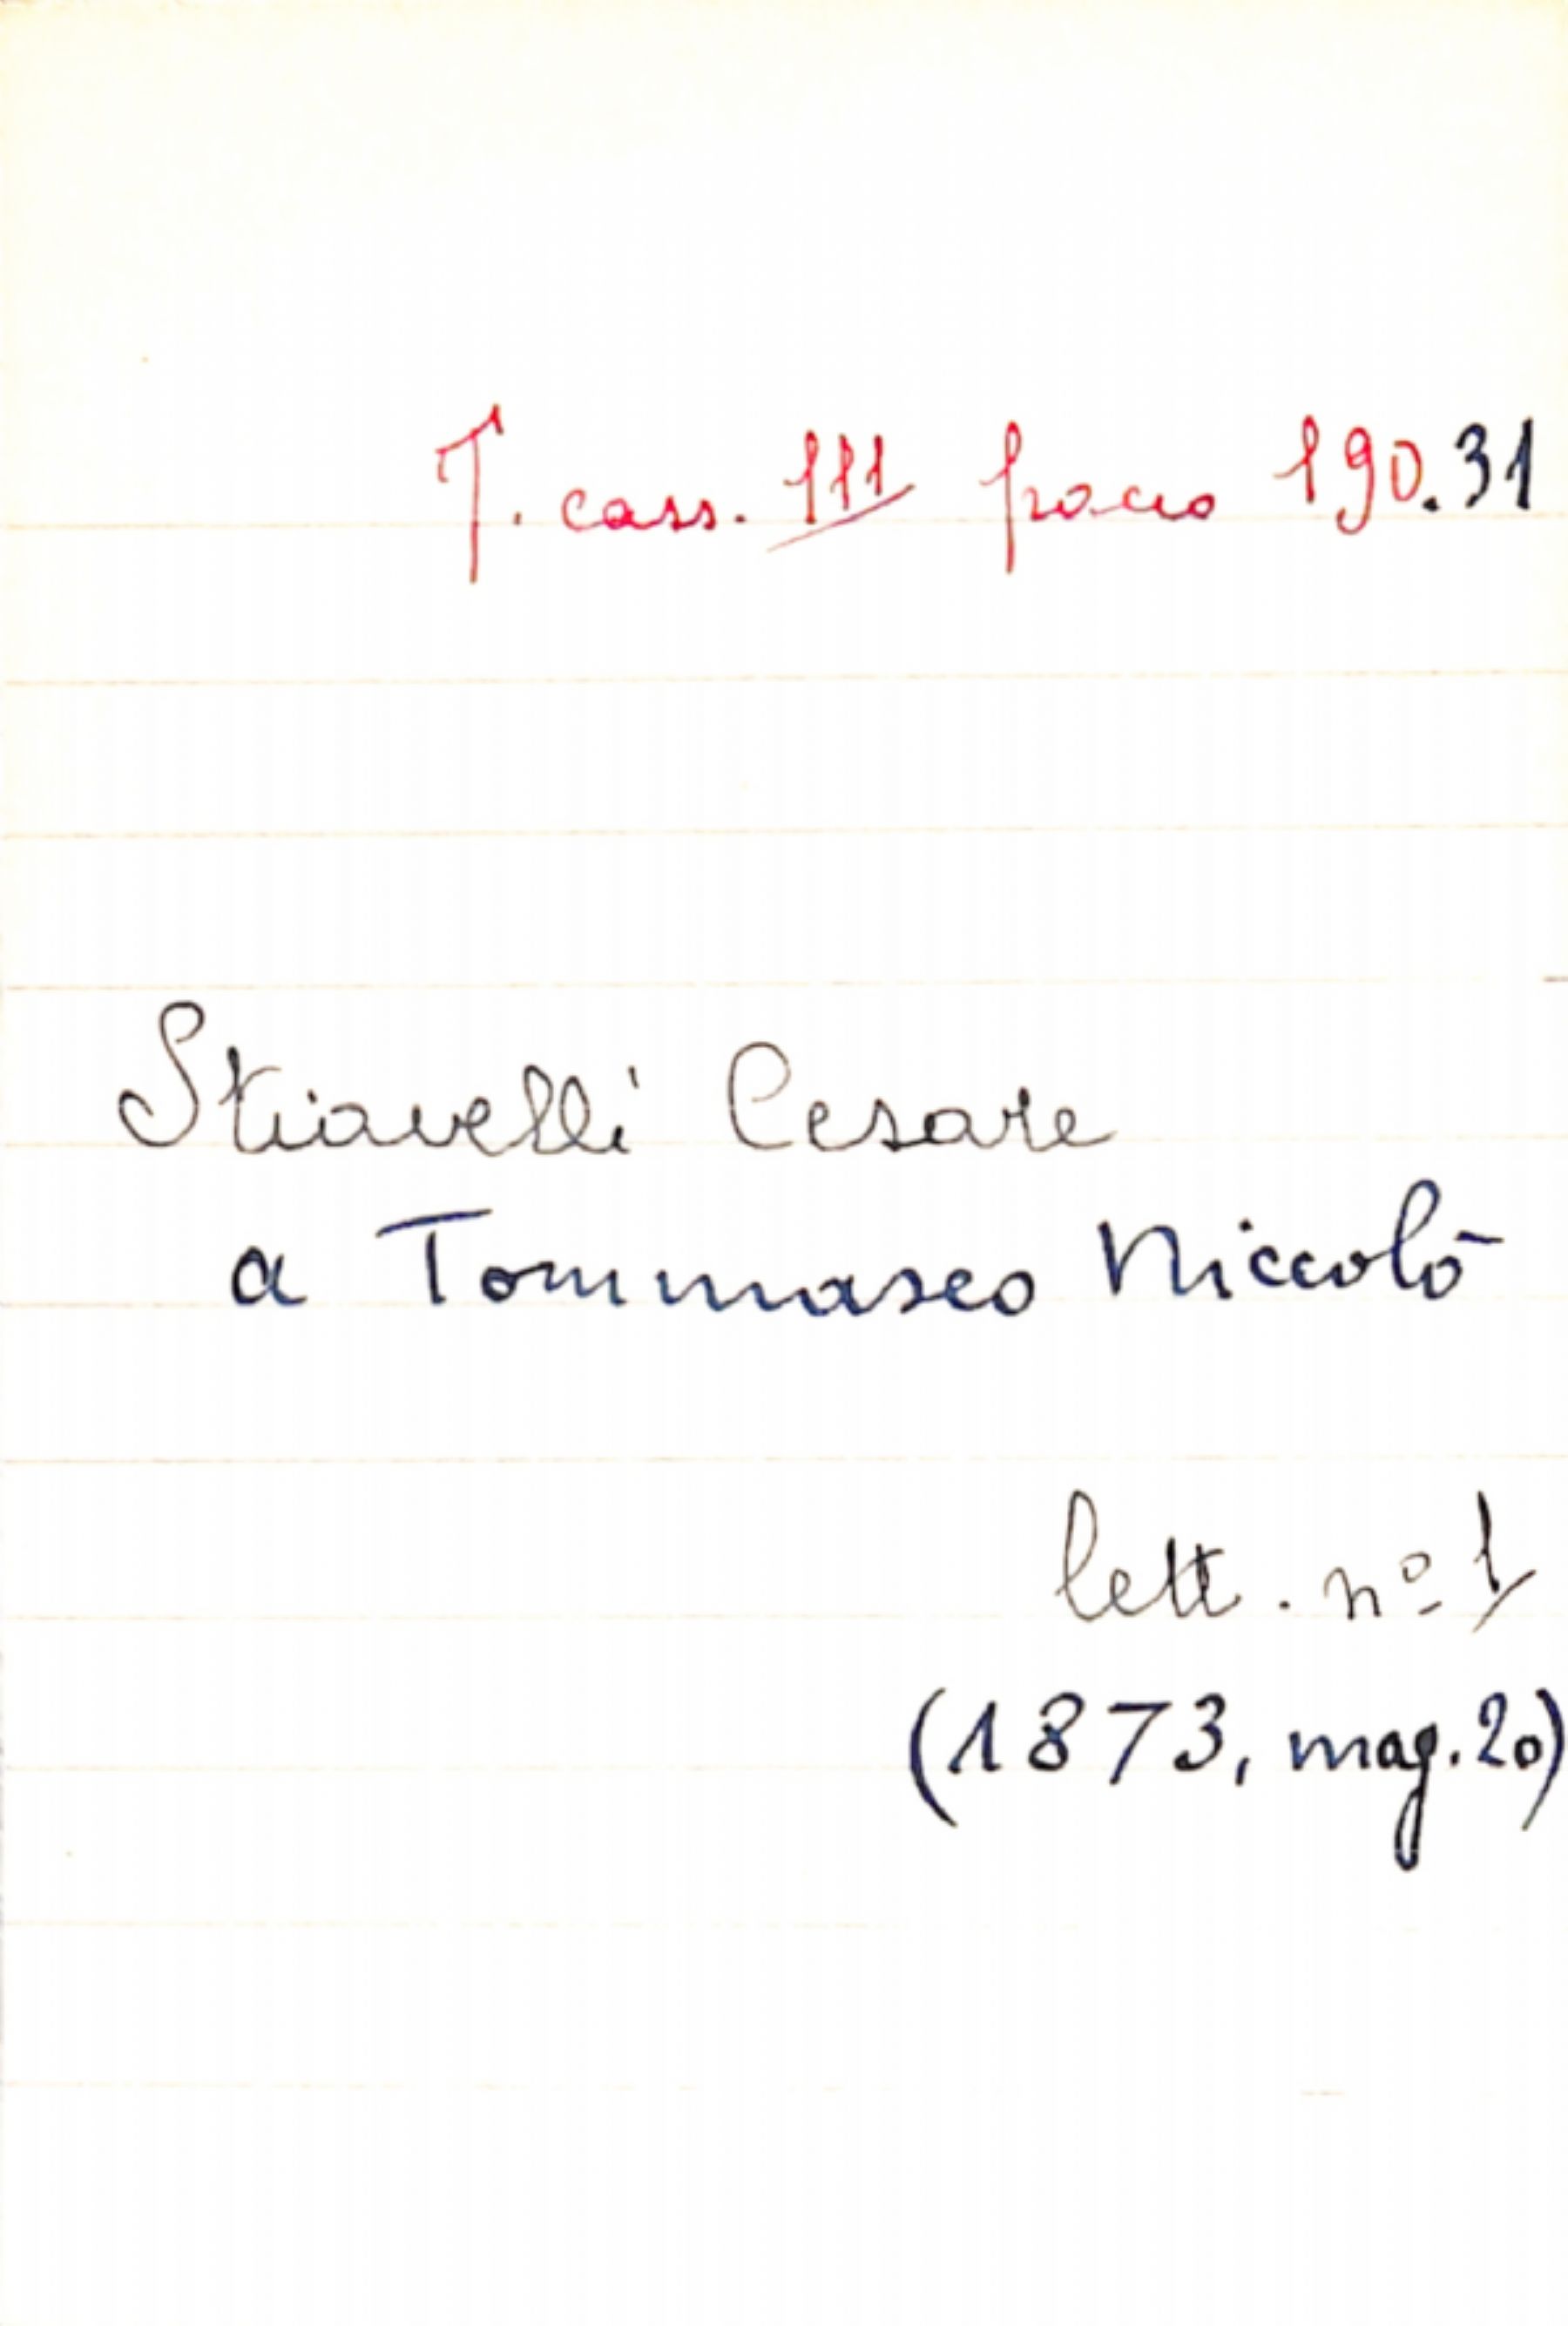 T. cass. 111 pacco 190.31
Stiavelli Cesare
a Tommaseo Niccolò
lett. nº 1
(1873, mag. 20)